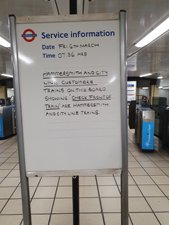 Service information
Date FRI 6TH MARCH
Time 07:36 HRS
HAMMERSMITH AND CITY
LINE CUSTOMERS
TRAINS ON THIS BOARD
SHOWING 'CHECK FRONT OF
TRAIN' ARE HAMMERSMITH
AND CITY LINE TRAINS.